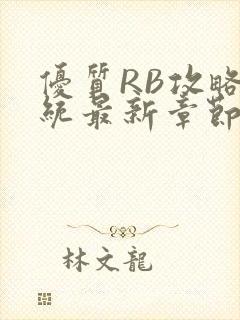 優質RB攻略
統最新章節
林文龍